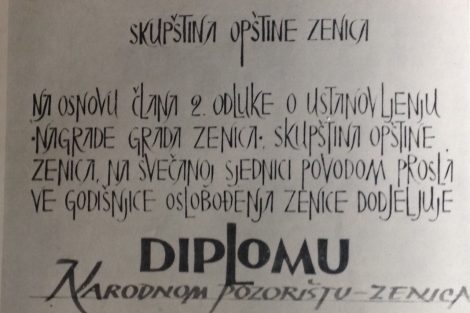 SKUPŠTINA OPŠTINE ZENICA
NA OSNOVU ČLANA 2. ODLUKE O USTANOVLJENJU
·NAGRADE GRADA ZENICA·, SKUPŠTINA OPŠTINE
ZENICA, NA SVEČANOJ SJEDNICI POVODOM PROSLA
VE GODIŠNJICE OSLOBOĐENJA ZENICE DODJELJUJE
DIPLOMU
NARODNOM POZORIŠTU-ZENICA